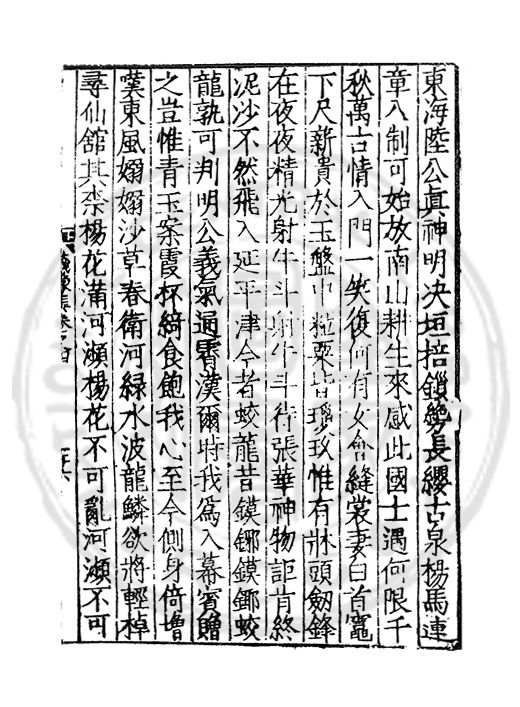 東海陸公真神明决垣掊鎖絶長纓古泉楊馬連
章入制可始放南山耕生來感此國士遇何限千
秋萬古情入門一笑復何有女會縫裳妻臼首竈
下尺新貴於玉盤中粒粟皆瓊玖惟有牀頭劒鋒
在夜夜精光射牛斗射牛斗待張華神物詎肯終
泥沙不然飛入延平津今者蛟龍昔鏌鎁鏌鎁蛟
龍孰可判明公義氣通霄漢爾時我爲入幕賓贈
之豈惟青玉案霞杯綺食飽我心至今側身倍增
嘆東風嫋嫋沙草春衛河緑水波龍鱗欲將輕棹
尋仙舘其柰楊花滿河瀕楊花不可亂河瀕不可